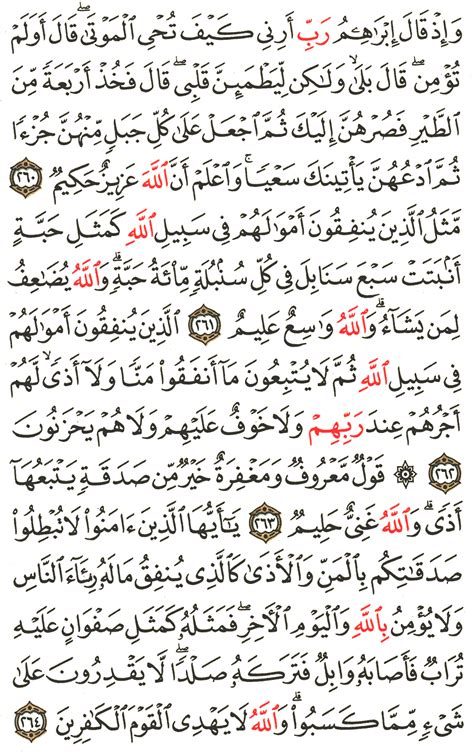 وَإِذۡ قَالَ إِبۡرَٰهِـۧمُ رَبِّ أَرِنِي كَيۡفَ تُحۡيِ ٱلۡمَوۡتَىٰۖ قَالَ أَوَلَمۡ
تُؤۡمِنۖ قَالَ بَلَىٰ وَلَٰكِن لِّيَطۡمَئِنَّ قَلۡبِيۖ قَالَ فَخُذۡ أَرۡبَعَةٗ مِّنَ
ٱلطَّيۡرِ فَصُرۡهُنَّ إِلَيۡكَ ثُمَّ ٱجۡعَلۡ عَلَىٰ كُلِّ جَبَلٖ مِّنۡهُنَّ جُزۡءٗا
ثُمَّ ٱدۡعُهُنَّ يَأۡتِينَكَ سَعۡيٗاۚ وَٱعۡلَمۡ أَنَّ ٱللَّهَ عَزِيزٌ حَكِيمٞ ٢٦٠
مَّثَلُ ٱلَّذِينَ يُنفِقُونَ أَمۡوَٰلَهُمۡ فِي سَبِيلِ ٱللَّهِ كَمَثَلِ حَبَّةٍ
أَنۢبَتَتۡ سَبۡعَ سَنَابِلَ فِي كُلِّ سُنۢبُلَةٖ مِّاْئَةُ حَبَّةٖۗ وَٱللَّهُ يُضَٰعِفُ
لِمَن يَشَآءُۚ وَٱللَّهُ وَٰسِعٌ عَلِيمٌ ٢٦١ ٱلَّذِينَ يُنفِقُونَ أَمۡوَٰلَهُمۡ
فِي سَبِيلِ ٱللَّهِ ثُمَّ لَا يُتۡبِعُونَ مَآ أَنفَقُواْ مَنّٗا وَلَآ أَذٗى لَّهُمۡ
أَجۡرُهُمۡ عِندَ رَبِّهِمۡ وَلَا خَوۡفٌ عَلَيۡهِمۡ وَلَا هُمۡ يَحۡزَنُونَ
٢٦٢ ۞ قَوۡلٞ مَّعۡرُوفٞ وَمَغۡفِرَةٌ خَيۡرٞ مِّن صَدَقَةٖ يَتۡبَعُهَآ
أَذٗىۗ وَٱللَّهُ غَنِيٌّ حَلِيمٞ ٢٦٣ يَٰٓأَيُّهَا ٱلَّذِينَ ءَامَنُواْ لَا تُبۡطِلُواْ
صَدَقَٰتِكُم بِٱلۡمَنِّ وَٱلۡأَذَىٰ كَٱلَّذِي يُنفِقُ مَالَهُۥ رِئَآءَ ٱلنَّاسِ
وَلَا يُؤۡمِنُ بِٱللَّهِ وَٱلۡيَوۡمِ ٱلۡأٓخِرِۖ فَمَثَلُهُۥ كَمَثَلِ صَفۡوَانٍ عَلَيۡهِ
تُرَابٞ فَأَصَابَهُۥ وَابِلٞ فَتَرَكَهُۥ صَلۡدٗاۖ لَّا يَقۡدِرُونَ عَلَىٰ
شَيۡءٖ مِّمَّا كَسَبُواْۗ وَٱللَّهُ لَا يَهۡدِي ٱلۡقَوۡمَ ٱلۡكَٰفِرِينَ ٢٦٤